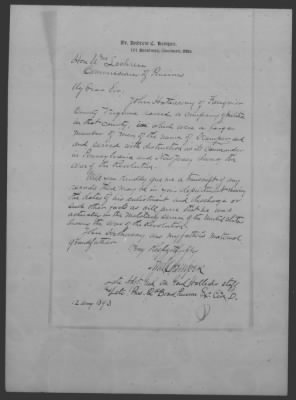 Dr. Andrew C. Kemper,
101 Broadway, Cincinnati, Ohio.
Hon Wm Lochren
Commissioner of Pensions
My dear Sir,
John Hathaway of Fauquier
County Virginia raised a company of
in that county, in which were a large
number of men of the name of
and served with distinction as its Commander
in Pennsylvania and New Jersey during the
war of the Revolution.
Will you kindly give me a transcript of any
records that may be in your department showing
the dates of his enlistment and discharge or
such other facts as will show that he was
actually in the military service of the United States
during the war of the Revolution.
John Hathaway was my father's maternal
grandfather.
Very Respectfully
late Asst. Adj. Gen.
late
12 Aug 1893